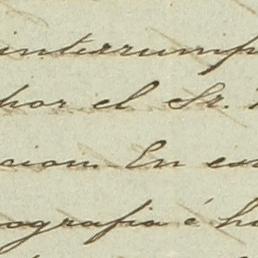 interrump
por el Sr.
cion. En es
ografia é h